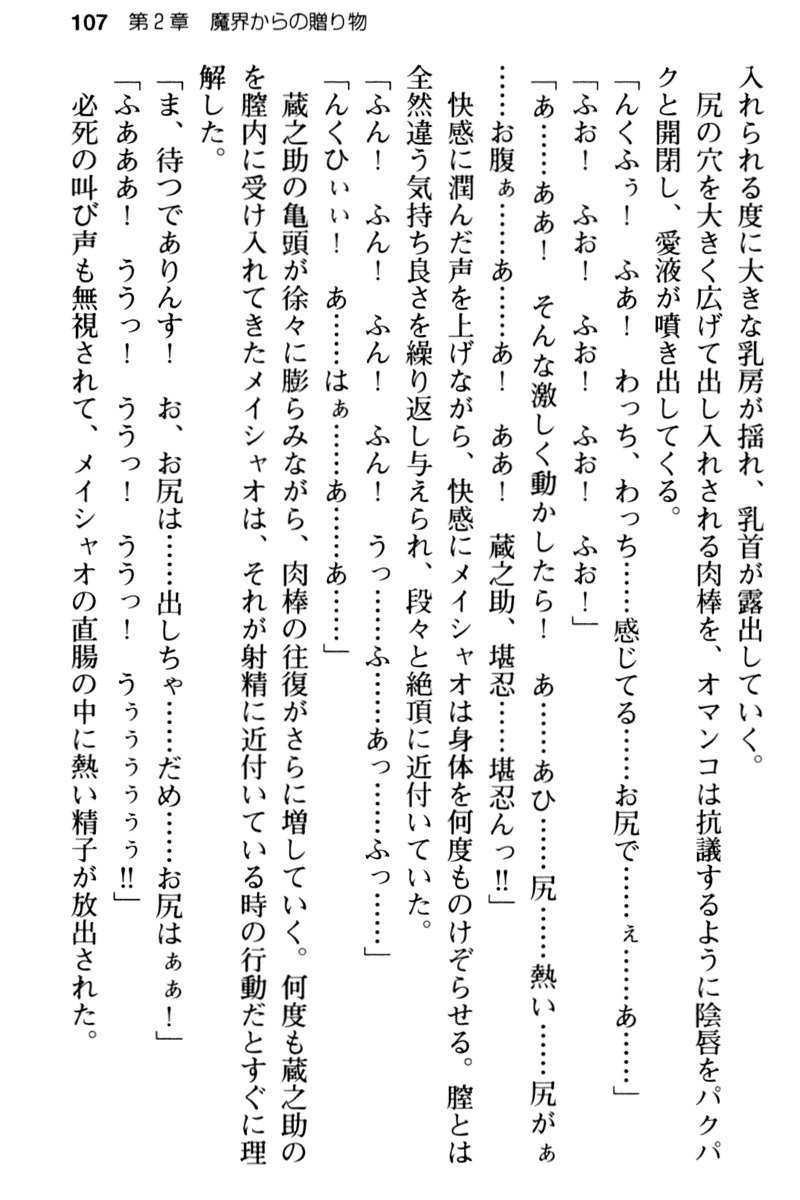 107 第2章 魔界からの贈り物
入れられる度に大きな乳房が揺れ、乳首が露出していく。
尻の穴を大きく広げて出し入れされる肉棒を、オマンコは抗議するように陰唇をパクパ
クと開閉し、愛液が噴き出してくる。
「んくふぅ！　ふあ！　わっち、わっち……感じてる……お尻で……ぇ……あ……」
「ふお！　ふお！　ふお！　ふお！　ふお！」
「あ……ああ！　そんな激しく動かしたら！　あ……あひ……尻……熱い……尻がぁ
……お腹ぁ……あ……あ！　ああ！　蔵之助、堪忍……堪忍んっ!!」
快感に潤んだ声を上げながら、快感にメイシャオは身体を何度ものけぞらせる。膣とは
全然違う気持ち良さを繰り返し与えられ、段々と絶頂に近付いていた。
「ふん！　ふん！　ふん！　ふん！　うっ……ふ……あっ……ふっ……」
「んくひぃぃ！　あ……はぁ……あ……あ……」
蔵之助の亀頭が徐々に膨らみながら、肉棒の往復がさらに増していく。何度も蔵之助の
を膣内に受け入れてきたメイシャオは、それが射精に近付いている時の行動だとすぐに理
解した。
「ま、待つでありんす！　お、お尻は……出しちゃ……だめ……お尻はぁぁ！」
「ふあああ！　ううっ！　ううっ！　ううっ！　うぅぅぅぅぅぅ!!」
必死の叫び声も無視されて、メイシャオの直腸の中に熱い精子が放出された。